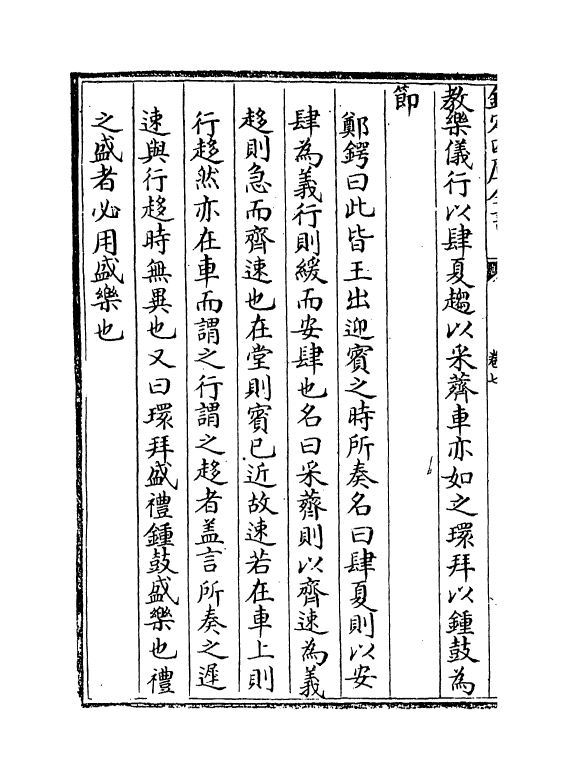 教樂儀行以肆夏趨以采薺車亦如之環拜以鍾鼓為
節
鄭鍔曰此皆王出迎賓之時所奏名曰肆夏則以安
肆為義行則緩而安肆也名曰采薺則以齊速為義
趍則急而齊速也在堂則賓已近故速若在車上則
行趍然亦在車而謂之行謂之趍者盖言所奏之遲
速與行趍時無異也又曰環拜盛禮鍾鼓盛樂也禮
之盛者必用盛樂也
卷七